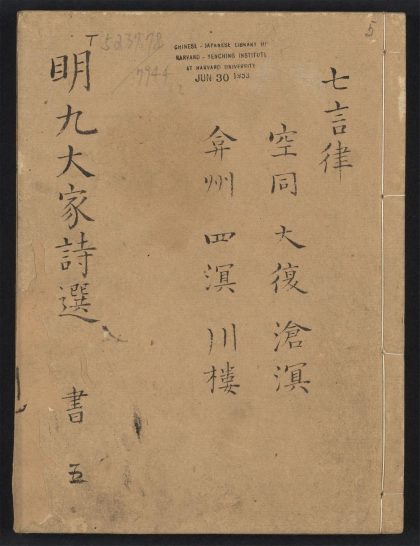 5
七言律
空同 大復 滄溟
弇州 四溟 川樓
CHINESE - JAPANESE LIBRARY OF
HARVARD - YENCHING INSTITUTE
AT HARVARD UNIVERSITY
JUN 30 1953
T 5237.78
7944
明九大家詩選
書 五